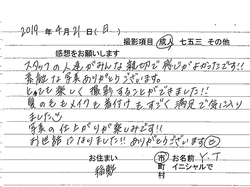 2019年 4月 21日(日)
撮影項目 成人 七五三 その他
感想をお願いします
スタッフの人達がみんな親切で感じがよかったです!!
素敵な写真ありがとうございます。
とっても楽しく撮影することができました!
髪のももメイクも着付もすごく満足で気に入り
ました
写真の仕上がりが楽しみです!!
お世話になりました!! ありがとうございます
お住まい 市町村
お名前 イニシャルで Y.T